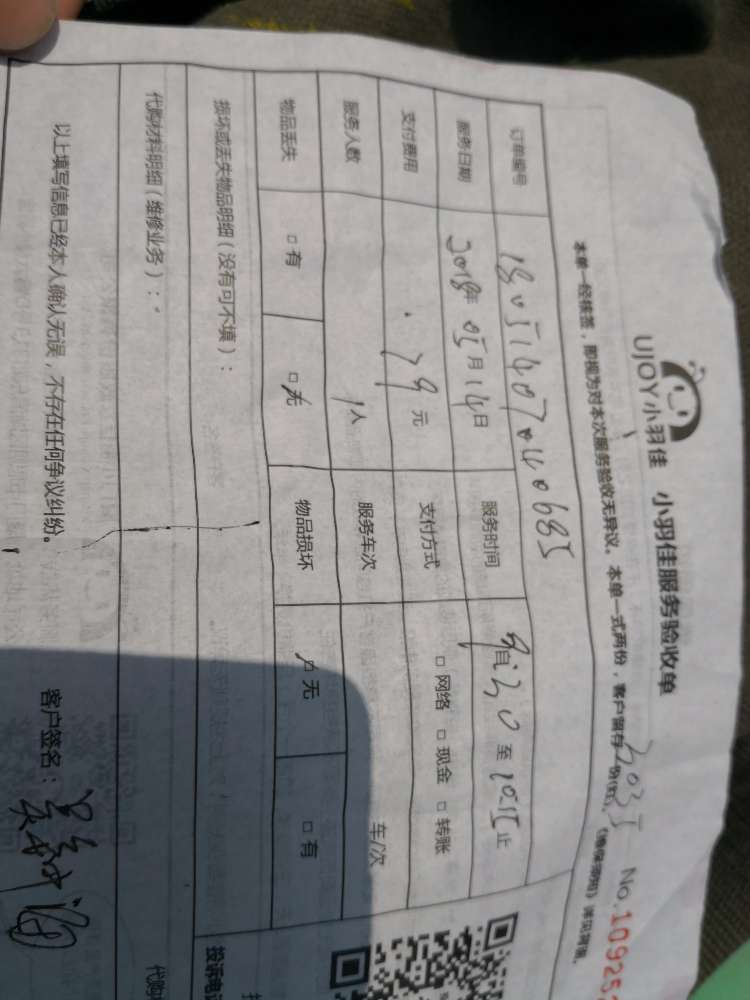 UJOY小羽佳 小羽佳服务验收单
No.109252
本单一经核签，即视为对本次服务验收无异议。本单一式两份，客户留存一份(红)，《维保须知》详见背面。
订单编号
服务日期 2018年05月14日 服务时间 自 至 止
支付费用 79元 支付方式 □ 网络 □ 现金 □ 转账
服务人数 1人 服务车次 车/次
物品丢失 □ 有 □ 无 物品损坏 □ 无 □ 有
损坏或丢失物品明细（没有可不填）：
代购材料明细（维修业务）：
以上填写信息已经本人确认无误，不存在任何争议纠纷。 客户签名：
投诉电
代购